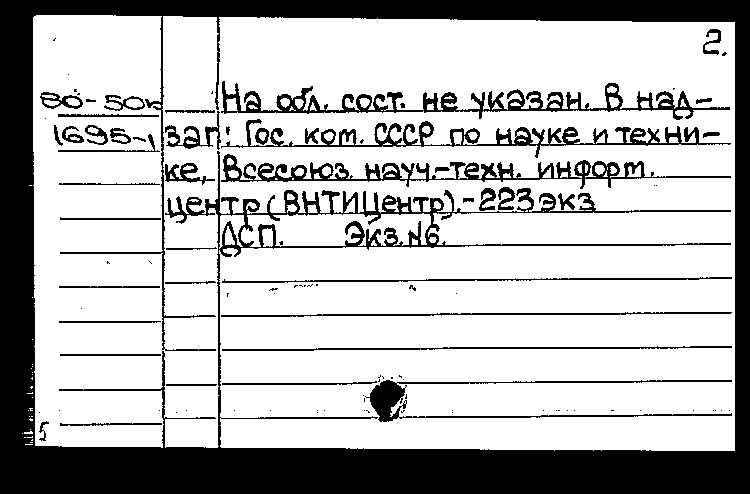 2.
80-50к На обл. сост. не указан. В над-
1695-1 заг: Гос. ком. СССР по науке и техни-
ке, Всесоюз. науч.-техн. информ.
центр (ВНТИЦентр).-223 экз
ДСП. Экз.№6.
5